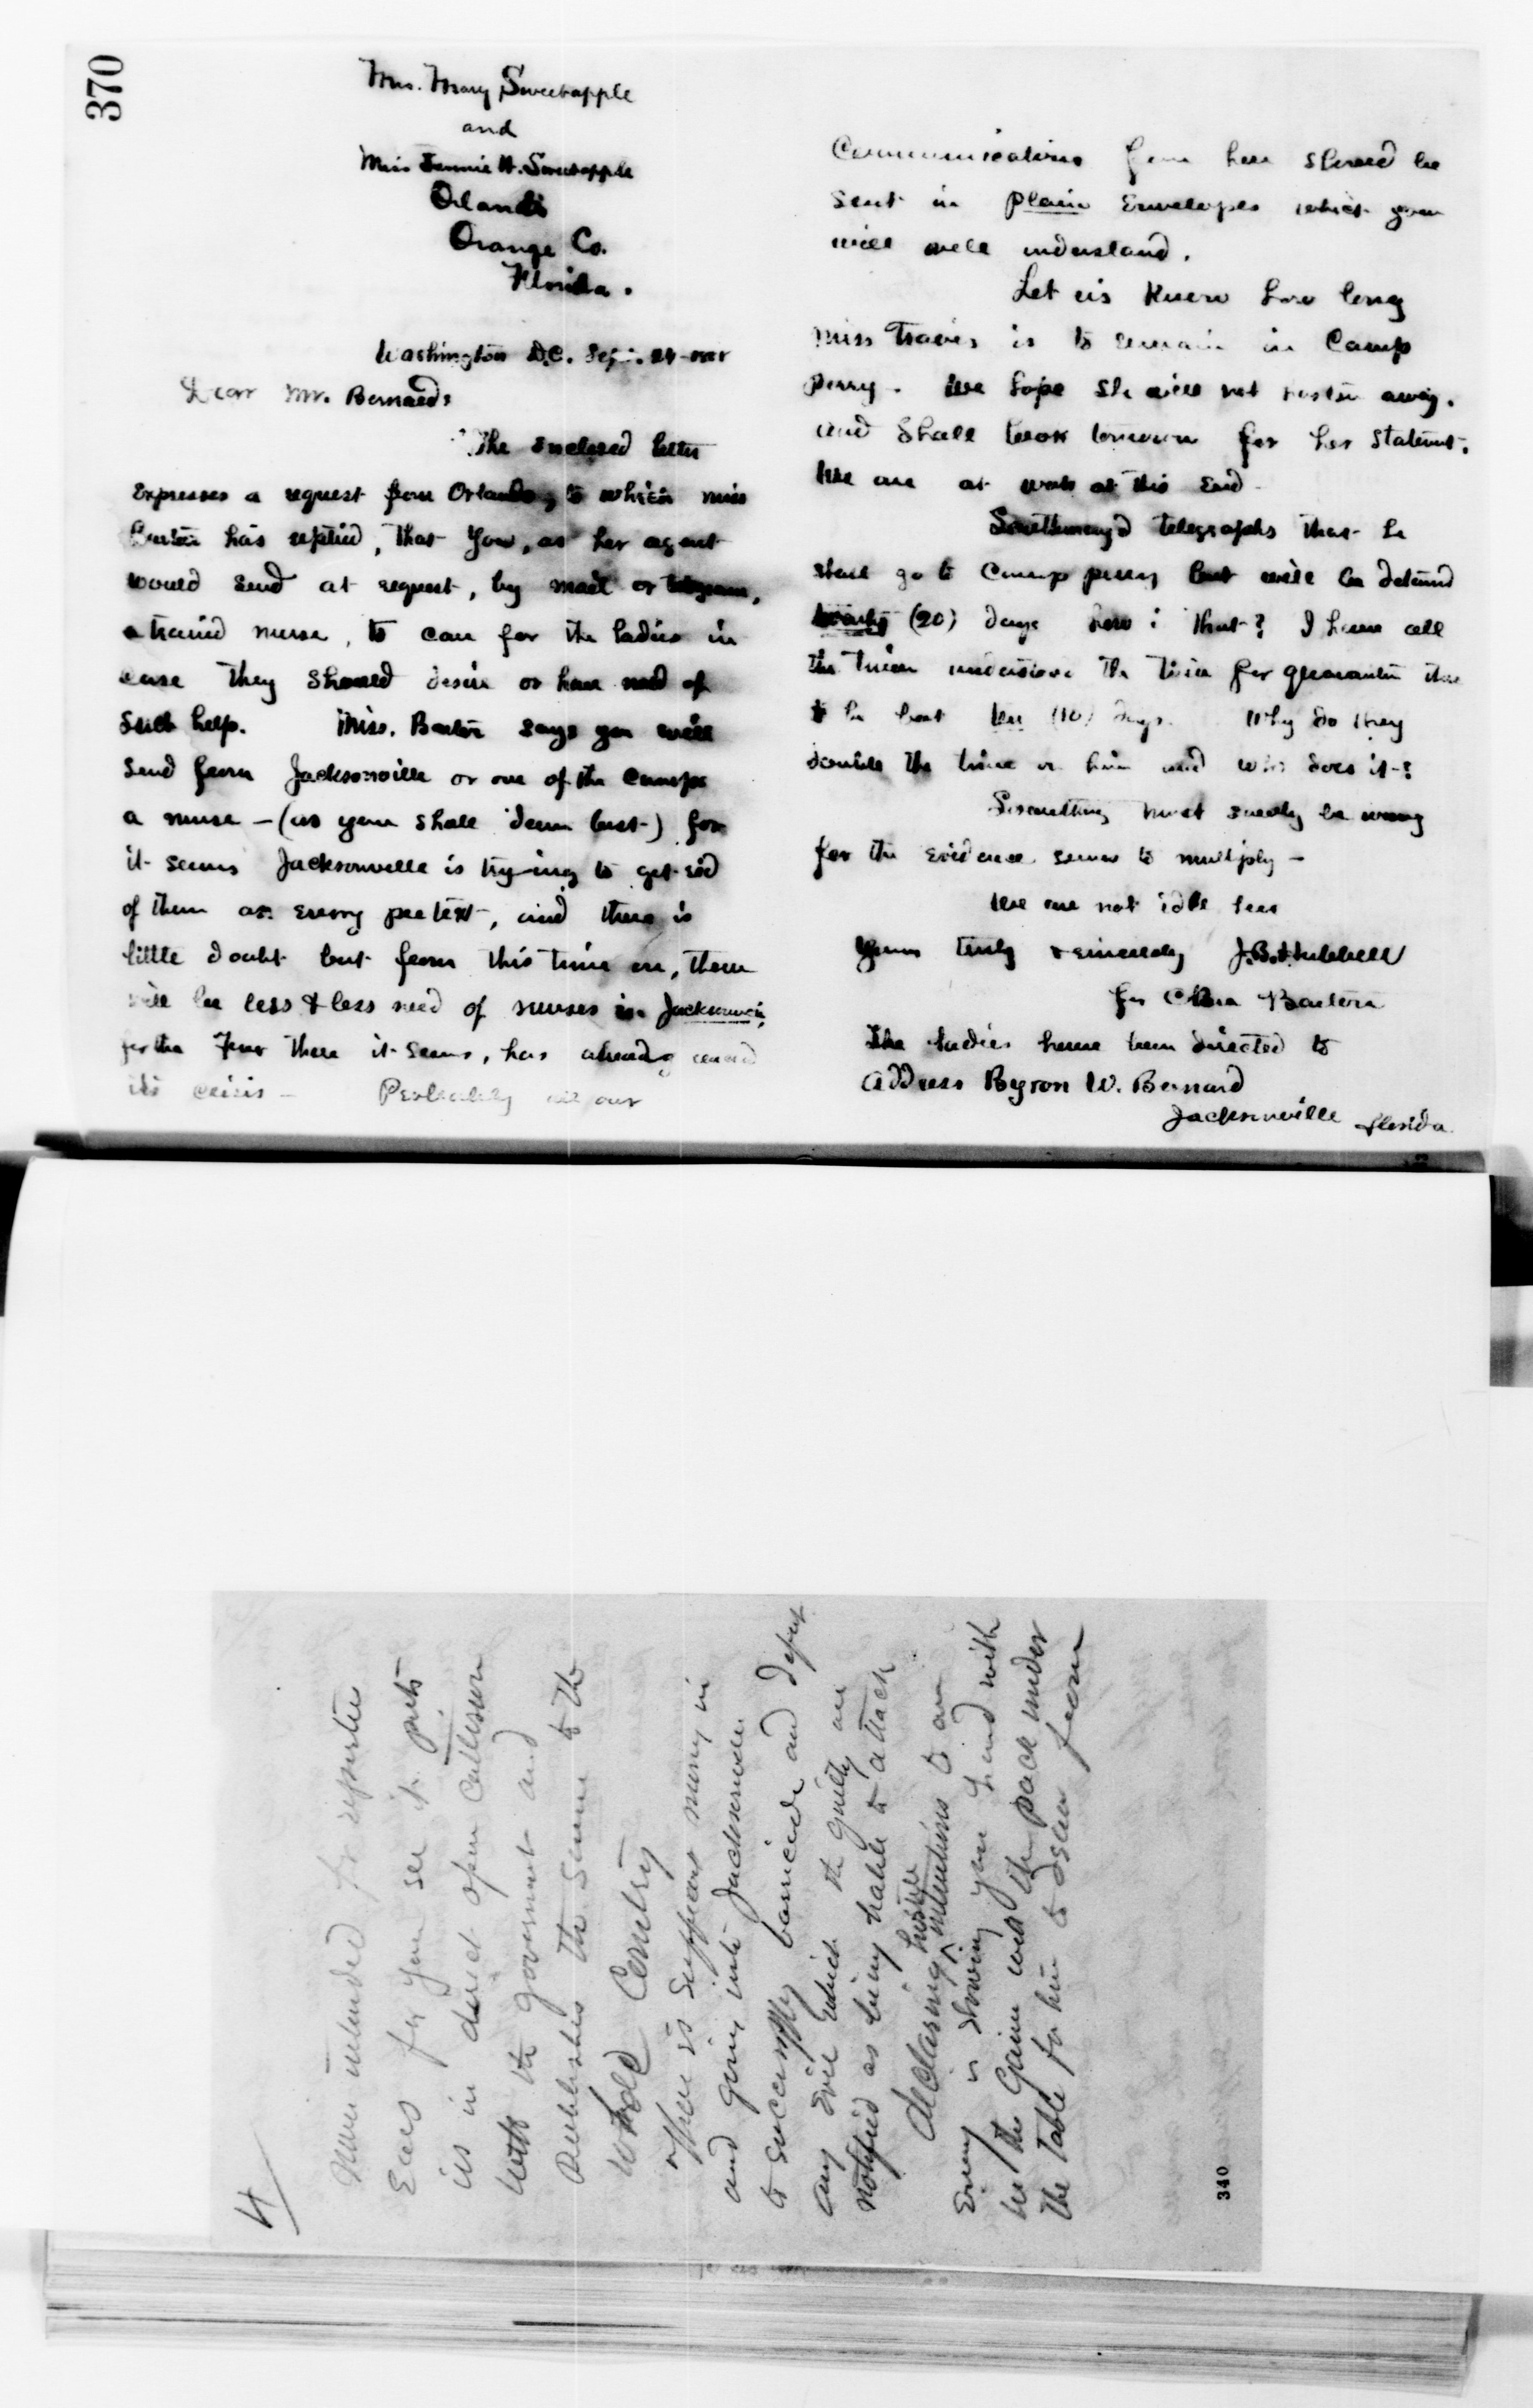 370
Mrs. Mary Sweetapple
and
Miss Jennie H. Sweetapple
Orlando
Orange Co.
Florida.
Washington D.C. Sep. 24
Dear Mr. Bernard:
The enclosed letter
expresses a request from Orlando, to which miss
Barton has replied, that you, as her agent
would send at request, by mail or telegram,
a traind nurse, to care for the ladies in
case they should desire or have need of
such help. Miss. Barton says you will
send from Jacksonville or one of the camps
a nurse – (as you shall deem best) for
it seems Jacksonville is trying to get rid
of them on every pretext, and there is
little doubt but from this time on, there
will be less & less need of nurses in Jacksonville,
for the Fever there it seems, has already
its crisis – Probably all our
Communications from here should be
sent in plain Envelopes which you
will well understand.
Let us know how long
miss Travis is to remain in Camp
perry. We hope she will not hasten away.
and shall look tomorrow for her statemt.
We are at work at this End.
Southmayd telegraphs that he
shall go to Camp perry but will be detaind
twenty (20) days how is that? I have all
the time understood the time for quarantine
to be but ten (10) days. Why do they
double the time on him and who does it?
Something must surely be wrong
for the evidence seems to multiply –
We are not idle here
Yours truly & sincerely J.B. Hubbell
for Clara Barton
The ladies have been directed to
address Byron W. Bernard
Jacksonville Florida.
4
intended for reporters
Ears for you see it puts
us in direct open collision
with the government and
publishes the same to the
whole Country
office is support nursing in
and going into Jacksonville
to successfully barricade and defeat
any evil which the guilty are
notified as being liable to attack
Declaring hostile intentions to an
Enemy is showing your hand with
the Game and the pack under
the table for him to draw from
340